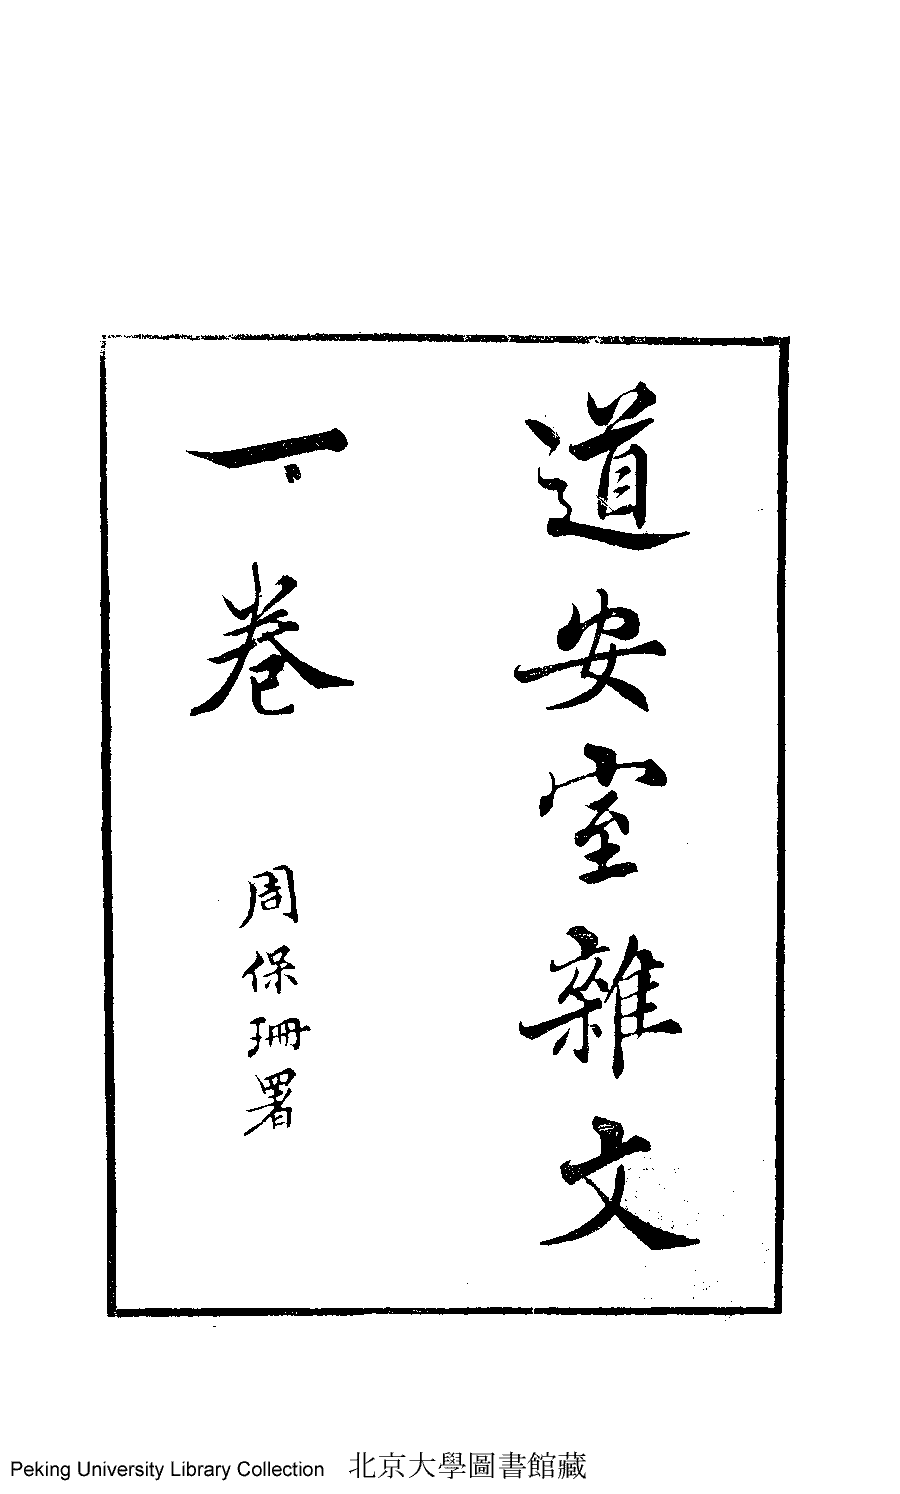 道安室雜文
一卷
周保珊署
Peking University Library Collection 北京大學圖書館藏